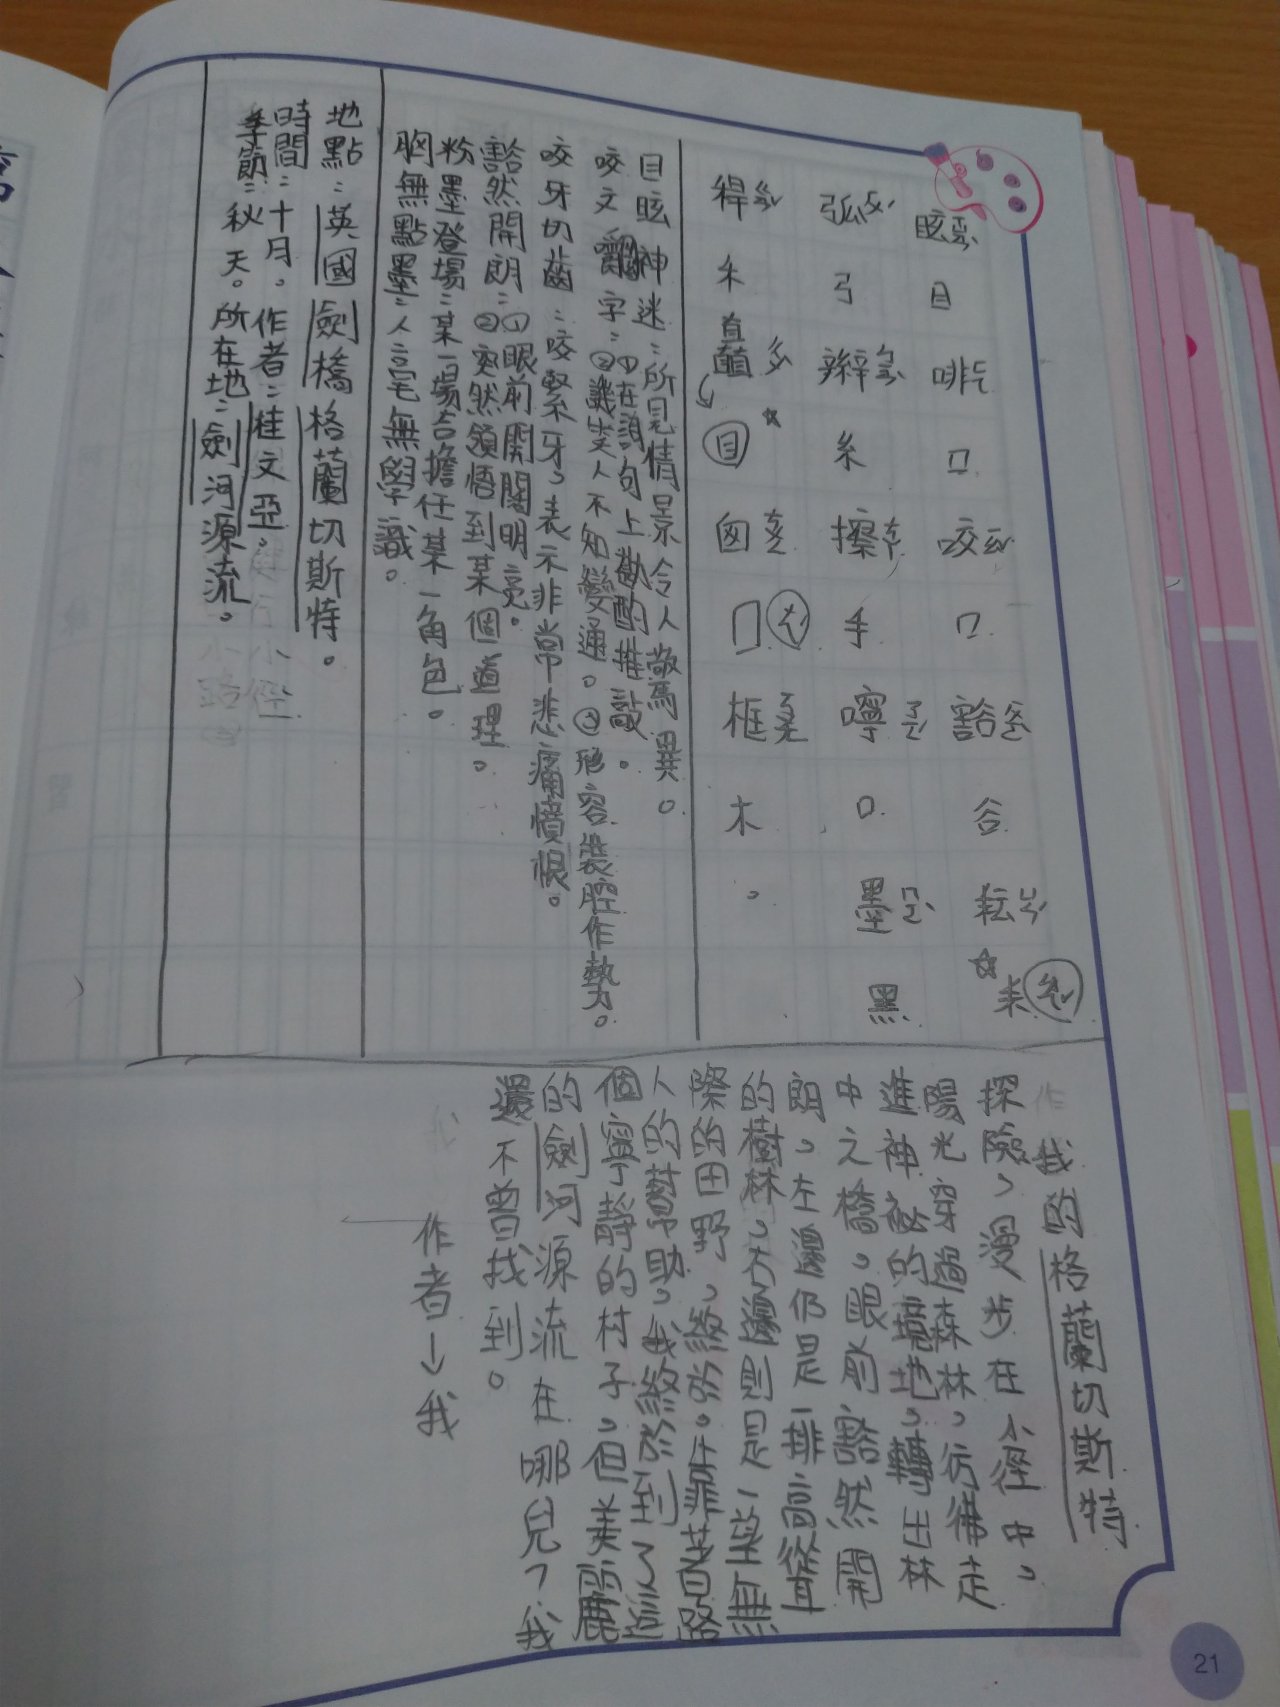 眩 目 啡 口 咬 口 豁 谷 耘 耒
弧 弓 辮 糸 擦 手 嚀 口 墨 黑
稈 禾 矗 目 囪 囗 框 木。
目眩神迷：所見情景令人驚異。
咬文嚼字：①在詞句上斟酌推敲。
②譏笑人不知變通。③形容裝腔作勢。
咬牙切齒：咬緊牙，表示非常悲痛憤恨。
豁然開朗：①眼前開闊明亮。
②突然領悟到某個道理。
粉墨登場：某一場合擔任某一角色。
胸無點墨：人毫無學識。
地點：英國劍橋格蘭切斯特。
時間：十月。作者：桂文亞。
季節：秋天。所在地：劍河源流。
我的格蘭切斯特
探險，漫步在小徑中，
陽光穿過森林，彷彿走
進神祕的境地，轉出林
中之橋。眼前豁然開
朗，左邊仍是一排高聳
的樹林，右邊則是一望無
際的田野，終於。靠著路
人的幫助，我終於到了這
個寧靜的村子，但美麗
的劍河源流在哪兒？我
還不曾找到。
作者→我
21